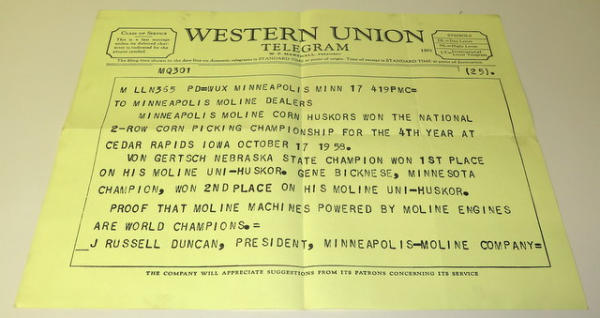 CLASS OF SERVICE
This is a fast message unless its deferred character is indicated by the proper symbol.
WESTERN UNION
TELEGRAM
W. P. MARSHALL, PRESIDENT
SYMBOLS
DL=Day Letter
NL=Night Letter
LT=International Letter Telegram
The filing time shown in the date line on domestic telegrams is STANDARD TIME at point of origin. Time of receipt is STANDARD TIME at point of destination
MQ301
(25).
M LLN365 PD=WUX MINNEAPOLIS MINN 17 419PMC=
TO MINNEAPOLIS MOLINE DEALERS
MINNEAPOLIS MOLINE CORN HUSKORS WON THE NATIONAL
2-ROW CORN PICKING CHAMPIONSHIP FOR THE 4TH YEAR AT
CEDAR RAPIDS IOWA OCTOBER 17 19 58.
VON GERTSCH NEBRASKA STATE CHAMPION WON 1ST PLACE
ON HIS MOLINE UNI-HUSKOR. GENE BICKNESE, MINNESOTA
CHAMPION, WON 2ND PLACE ON HIS MOLINE UNI-HUSKOR.
PROOF THAT MOLINE MACHINES POWERED BY MOLINE ENGINES
ARE WORLD CHAMPIONS.=
J RUSSELL DUNCAN, PRESIDENT, MINNEAPOLIS-MOLINE COMPANY=
THE COMPANY WILL APPRECIATE SUGGESTIONS FROM ITS PATRONS CONCERNING ITS SERVICE